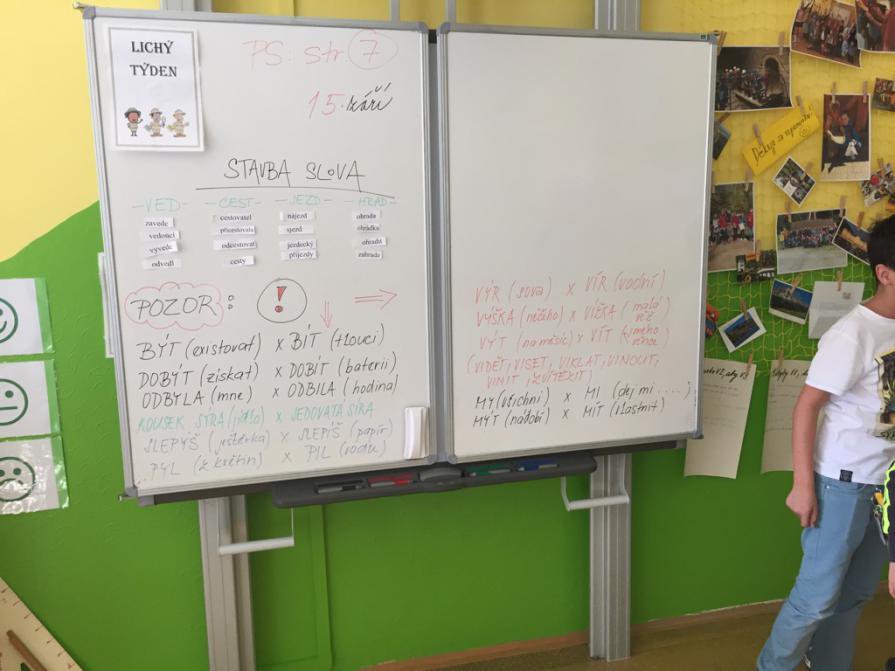 LICHÝ
TÝDEN
PS: str. 7
15. září
STAVBA SLOVA
-VED- -CEST- -JEZD- -HRAD-
zavede cestovatel nájezd ohrada
vedoucí procestovala sjezd ohrádka
vývede odcestovat jezdecký ohradit
odvedl cesty příjezdy zahrada
POZOR: !
BÝT (existovat) x BÍT (tlouci)
DOBÝT (získat) x DOBÍT (baterii)
ODBYLA (mne) x ODBILA (hodina)
KOUSEK SÝRA (jídlo) x JEDOVATÁ SÍRA
SLEPÝŠ (ještěrka) x SLEPÍŠ (papír)
PYL (z květin) x PIL (vodu)
VÝR (sova) x VÍR (vodní)
VÝŠKA (něčeho) x VÍŠKA (malá
VÝT (na měsíc) x VÍT (jméno
(VIDĚT, VISET, VIKLAT, VINOUT,
VINIT, ZVÍTĚZIT)
MY (všichni) x MI (dej mi ....)
MÝT (nádobí) x MÍT (vlastnit)
Děkuji